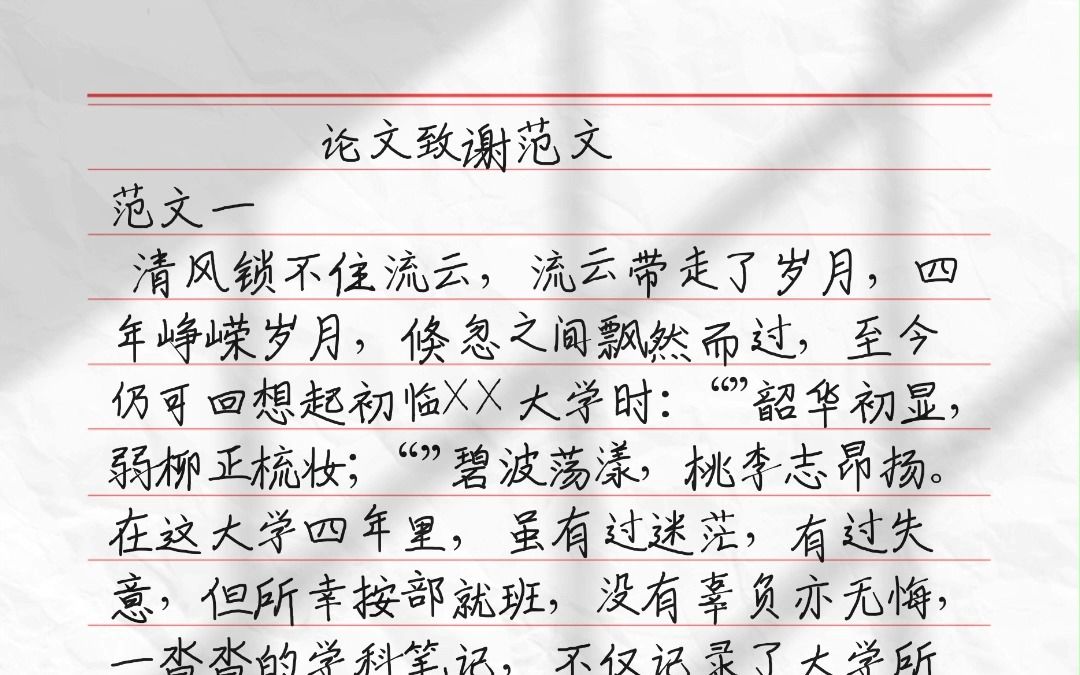 论文致谢范文
范文一
清风锁不住流云，流云带走了岁月，四
年峥嵘岁月，倏忽之间飘然而过，至今
仍可回想起初临XX大学时：“”韶华初显，
弱柳正梳妆；“”碧波荡漾，桃李志昂扬。
在这大学四年里，虽有过迷茫，有过失
意，但所幸按部就班，没有辜负亦无悔，
一沓沓的学科笔记，不仅记录了大学所